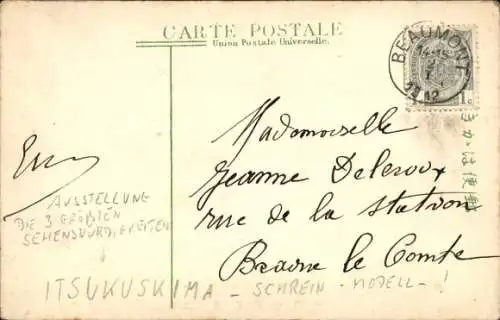 CARTE POSTALE
Union Postale Universelle.
BEAUMONT
14-15
1912
1 c
AUSSTELLUNG
DIE 3 GRÖẞTEN
SEHENSWÜRDIGKEITEN
ITSUKUSHIMA - SCHREIN - MODELL - !
Mademoiselle
Jeanne Deleroux
rue de la Station
Beaune le Comte